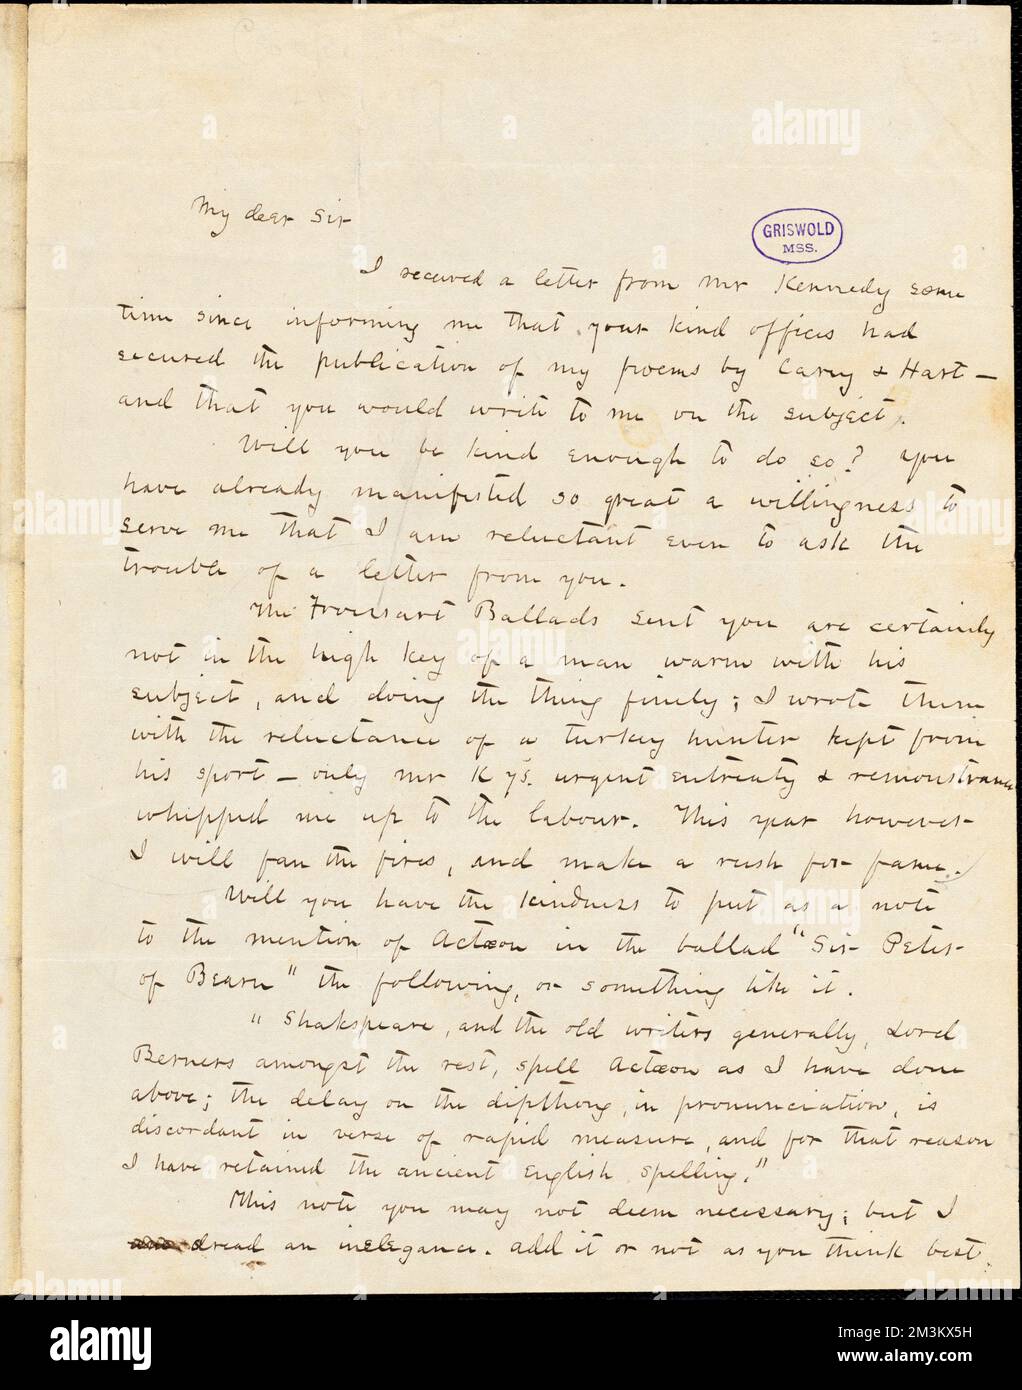 My dear Sir
GRISWOLD
MSS.
I received a letter from Mr Kennedy some
time since informing me that your kind offices had
secured the publication of my poems by Carey & Hart —
and that you would write to me on the subject.
Will you be kind enough to do so? You
have already manifested so great a willingness to
serve me that I am reluctant even to ask the
trouble of a letter from you.
The Froissart Ballads sent you are certainly
not in the high key of a man warm with his
subject, and doing the thing finely; I wrote them
with the reluctance of a turkey hunter kept from
his sport — only Mr K'ys. urgent entreaty & remonstrance
whipped me up to the labour. This year however
I will fan the fires, and make a rush for fame.
Will you have the kindness to put as a note
to the mention of Actæon in the ballad "Sir Peter
of Bearn" the following, or something like it.
"Shakspeare, and the old writers generally, Lord
Berners amongst the rest, spell Actæon as I have done
above; the delay on the dipthong, in pronunciation, is
discordant in verse of rapid measure, and for that reason
I have retained the ancient English spelling."
This note you may not deem necessary; but I
dread an inelegance. Add it or not as you think best.
alamy
Image ID: 2M3KX5H
www.alamy.com